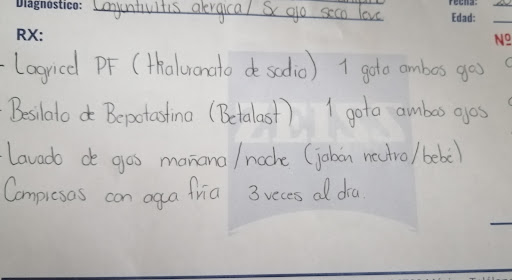 Diagnóstico: Conjuntivitis alergica / Sx ojo seco leve
Fecha:
Edad:
RX:
Nº
- Lagricel PF (Hialuronato de sodio) 1 gota ambos ojos
- Besilato de Bepotastina (Betalast) 1 gota ambos ojos
- Lavado de ojos mañana/noche (jabón neutro/bebé)
Compresas con agua fría 3 veces al día.
ZEISS